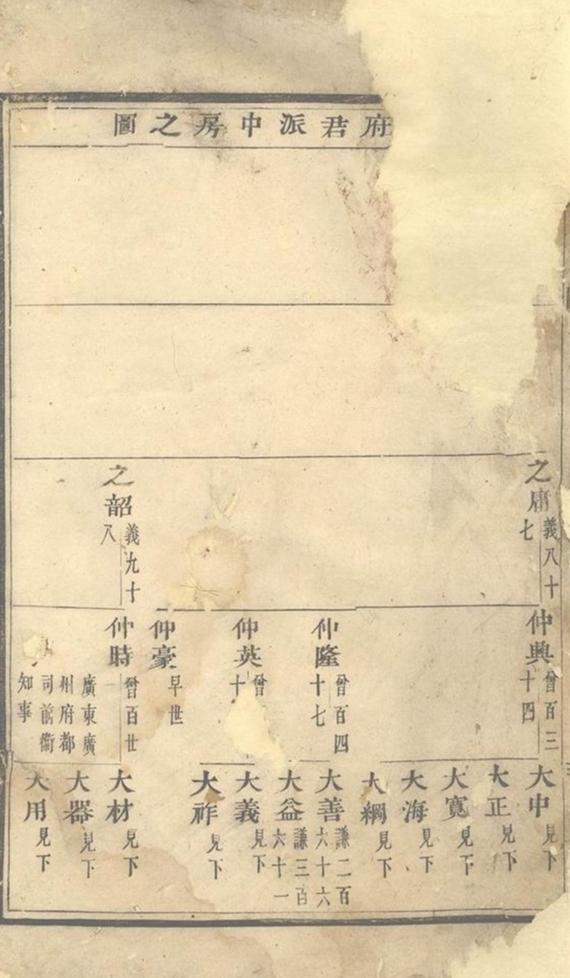 府君派中房之圖
之庸 義八十七
之韶 義九十八
仲興 曾百三十四
仲隆 曾百四十七
仲英 曾 十
仲豪 早世
仲時 曾百世一 廣東廣州府都司前衛知事
大中 見下
大正 見下
大寬 見下
大海 見下
大綱 見下
大善 謙二百六十六
大益 謙三百六十一
大義 見下
大祚 見下
大材 見下
大器 見下
大用 見下